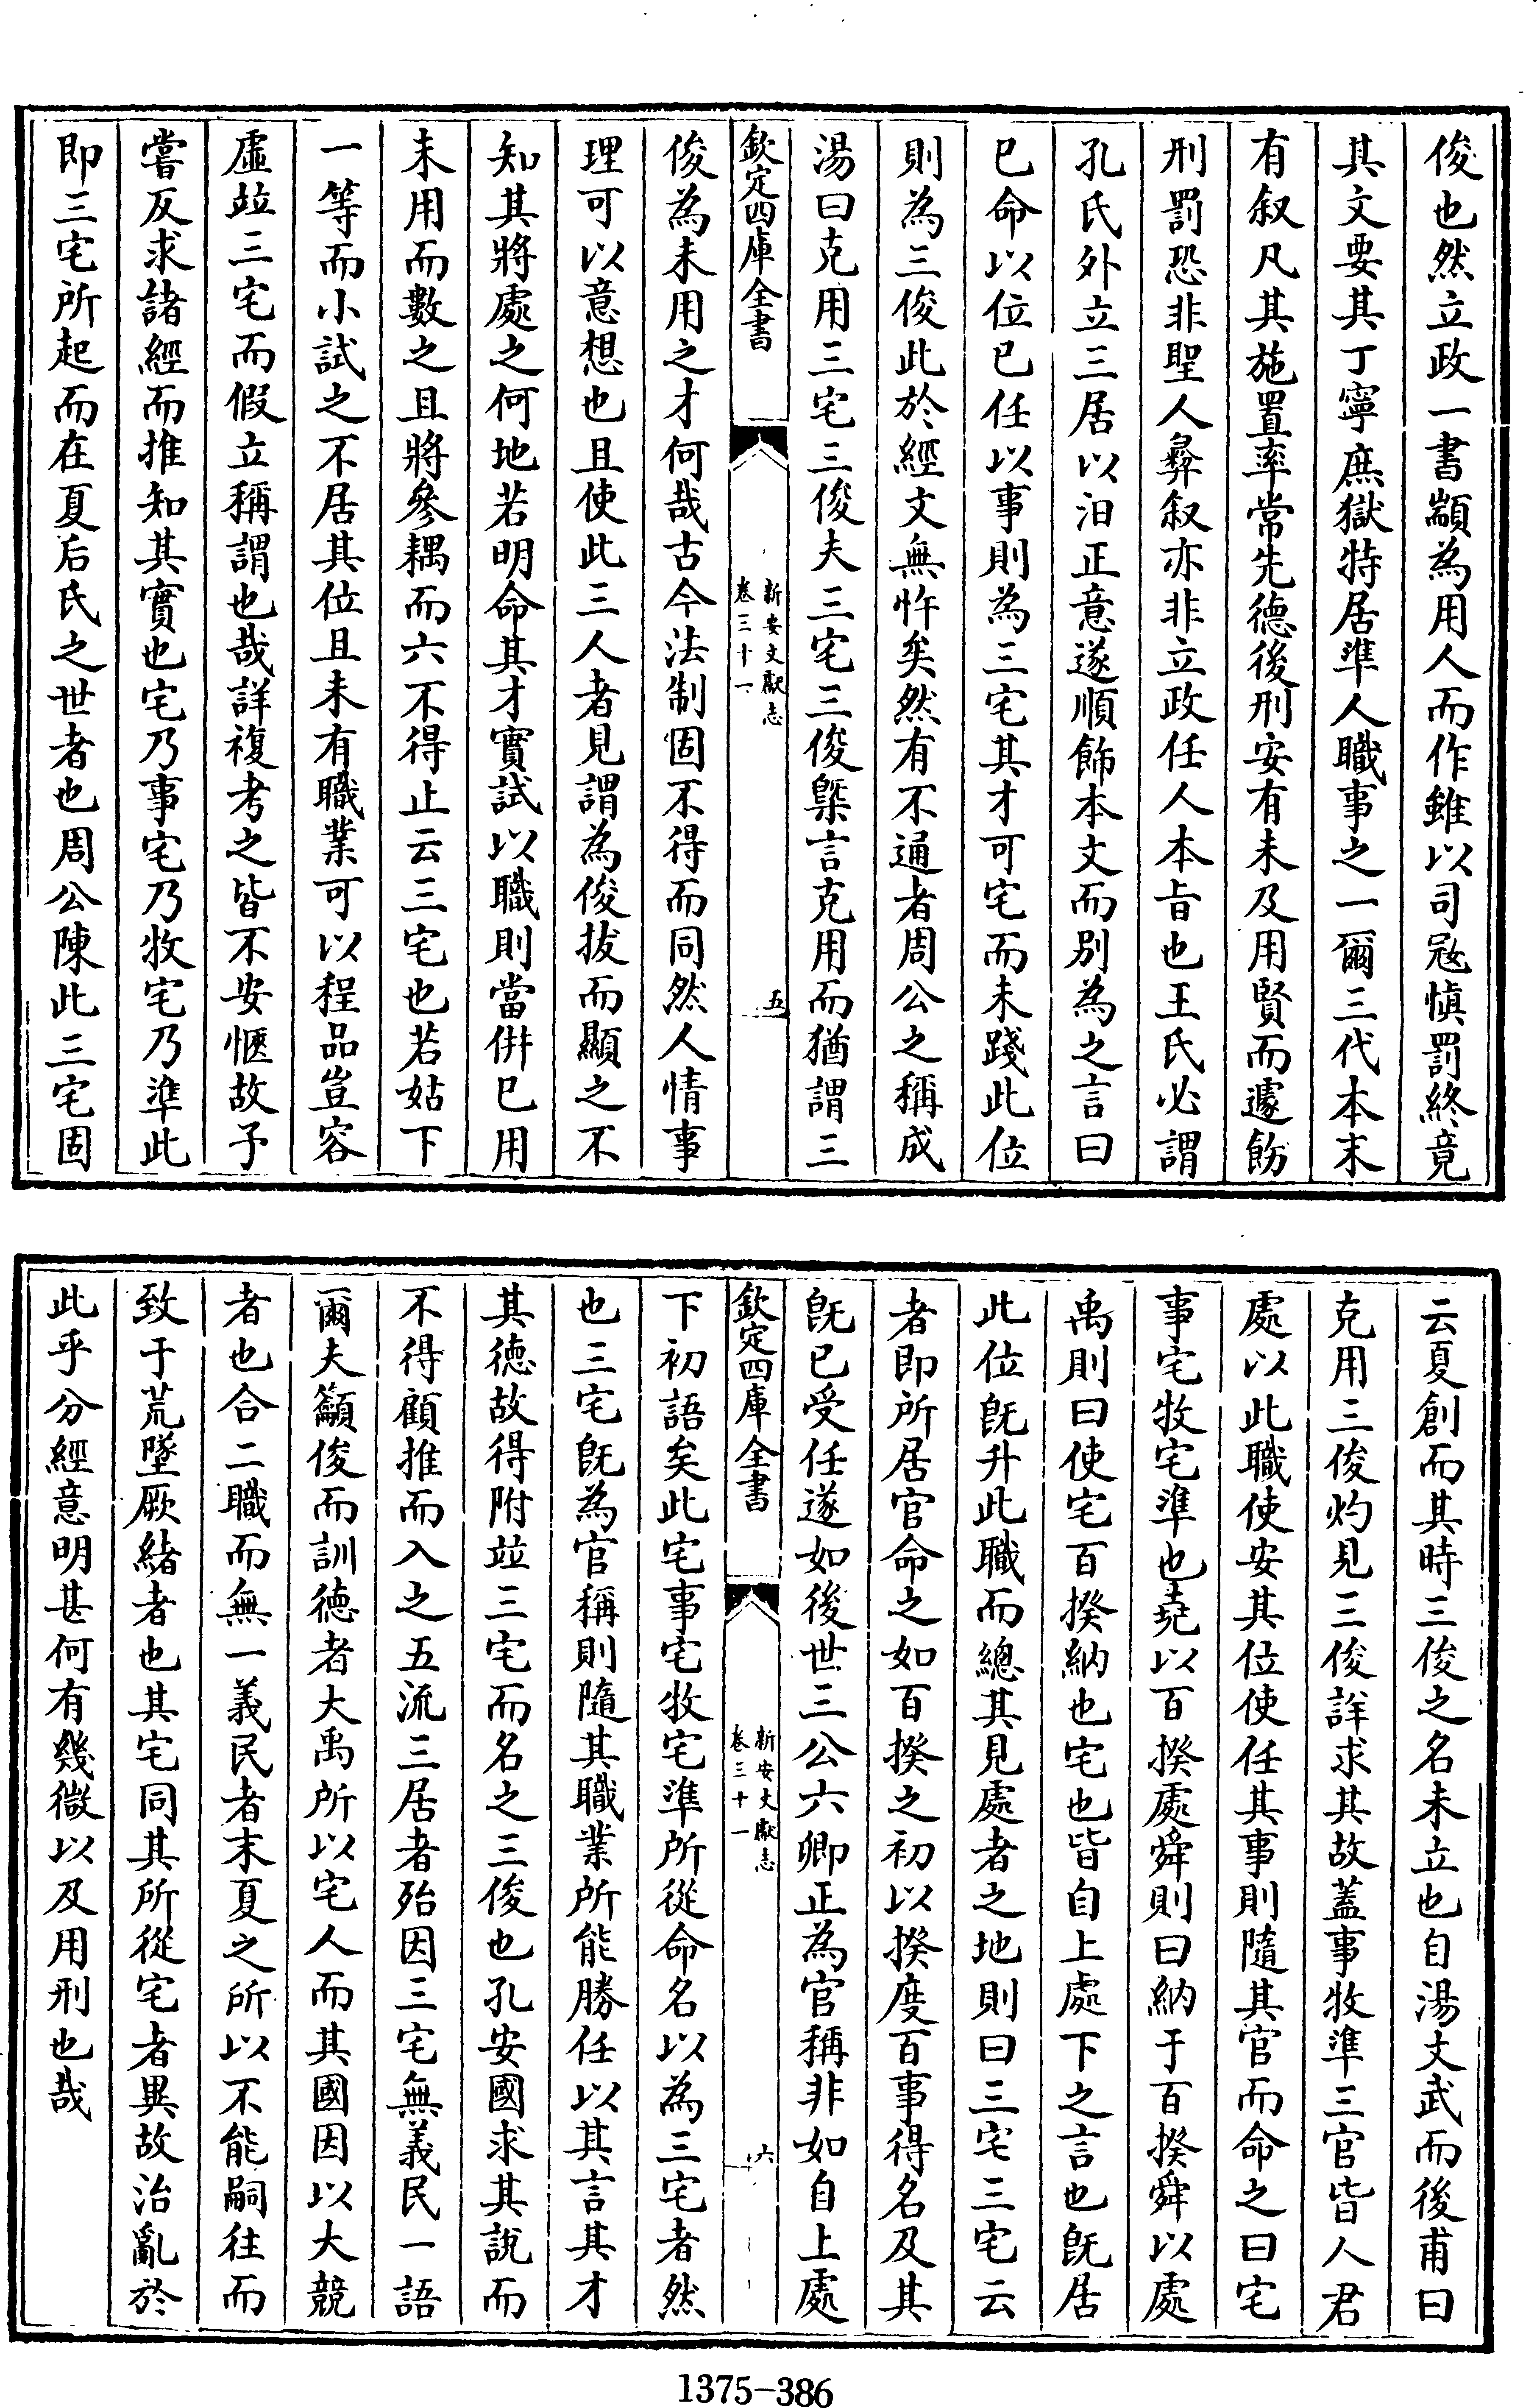 俊也然立政一書顓為用人而作雖以司冦慎罰終竟
其文要其丁寧庶獄特居準人職事之一爾三代本末
有叙凡其施置率常先德後刑安有未及用賢而遽飭
刑罰恐非聖人彝叙亦非立政任人本旨也王氏必謂
孔氏外立三居以汨正意遂順飾本文而別為之言曰
已命以位已任以事則為三宅其才可宅而未踐此位
則為三俊此於經文無忤矣然有不通者周公之稱成
湯曰克用三宅三俊夫三宅三俊槩言克用而猶謂三
欽定四庫全書
新安文獻志
卷三十一
五
俊為未用之才何哉古今法制固不得而同然人情事
理可以意想也且使此三人者見謂為俊拔而顯之不
知其將處之何地若明命其才實試以職則當併已用
未用而數之且將參耦而六不得止云三宅也若姑下
一等而小試之不居其位且未有職業可以程品豈容
虛竝三宅而假立稱謂也哉詳複考之皆不安愜故予
嘗反求諸經而推知其實也宅乃事宅乃牧宅乃準此
即三宅所起而在夏后氏之世者也周公陳此三宅固
云夏創而其時三俊之名未立也自湯文武而後甫曰
克用三俊灼見三俊詳求其故蓋事牧準三官皆人君
處以此職使安其位使任其事則隨其官而命之曰宅
事宅牧宅準也堯以百揆處舜則曰納于百揆舜以處
禹則曰使宅百揆納也宅也皆自上處下之言也旣居
此位旣升此職而總其見處者之地則曰三宅三宅云
者即所居官命之如百揆之初以揆度百事得名及其
旣已受任遂如後世三公六卿正為官稱非如自上處
欽定四庫全書
新安文獻志
卷三十一
六
下初語矣此宅事宅牧宅準所從命名以為三宅者然
也三宅旣為官稱則隨其職業所能勝任以其言其才
其德故得附竝三宅而名之三俊也孔安國求其說而
不得顧推而入之五流三居者殆因三宅無義民一語
爾夫籲俊而訓德者大禹所以宅人而其國因以大競
者也合二職而無一義民者末夏之所以不能嗣往而
致于荒墜厥緒者也其宅同其所從宅者異故治亂於
此乎分經意明甚何有幾微以及用刑也哉
1375-386